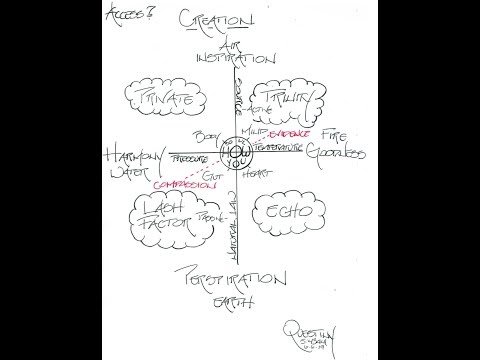 ACCESS?
CREATION
AIR
INSPIRATION
PRIVATE
TRINITY
SOURCE
ACTIVE
BODY
MIND
EVIDENCE
FIRE
HARMONY
PRESSURE
HOW
YOU
TEMPERATURE
GOODNESS
WATER
GUT
HEART
COMPASSION
LASH
FACTOR
PASSIVE
ECHO
NATURAL LAW
PERSPIRATION
EARTH